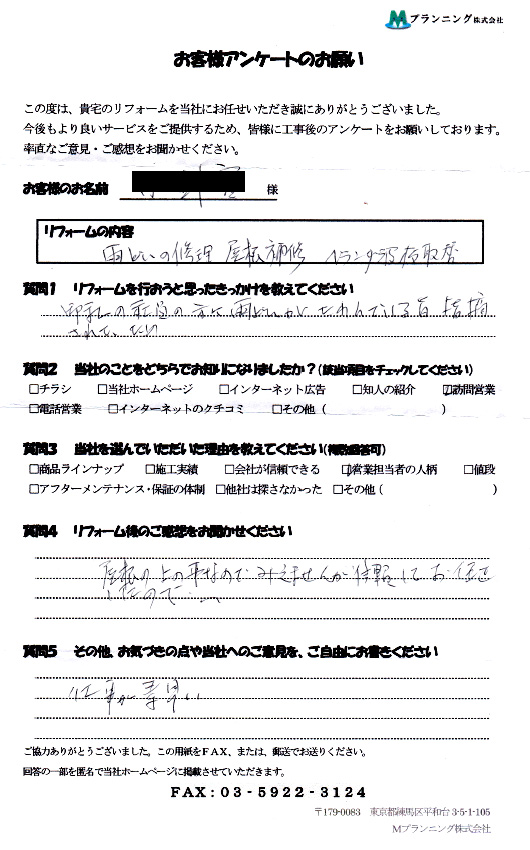 Mプランニング株式会社
お客様アンケートのお願い
この度は、貴宅のリフォームを当社にお任せいただき誠にありがとうございました。
今後もより良いサービスをご提供するため、皆様に工事後のアンケートをお願いしております。
率直なご意見・ご感想をお聞かせください。
お客様のお名前 様
リフォームの内容
雨どいの修理 屋根補修 ベランダ波板取替
質問1 リフォームを行おうと思ったきっかけを教えてください
の方に雨どいが たわんでいる旨 指摘
されていた
質問2 当社のことをどちらでお知りになりましたか?(該当項目をチェックしてください)
□チラシ □当社ホームページ □インターネット広告 □知人の紹介 ☑訪問営業
□電話営業 □インターネットのクチコミ □その他 ( )
質問3 当社を選んでいただいた理由を教えてください(複数回答可)
□商品ラインナップ □施工実績 □会社が信頼できる ☑営業担当者の人柄 □値段
□アフターメンテナンス・保証の体制 □他社は探さなかった □その他 ( )
質問4 リフォーム後のご感想をお聞かせください
屋根の上の事なので みえませんが 信頼して お任せ
したので…
質問5 その他、お気づきの点や当社へのご意見を、ご自由にお書きください
仕事が素早い
ご協力ありがとうございました。この用紙をFAX、または、郵送でお送りください。
回答の一部を匿名で当社ホームページに掲載させていただきます。
FAX:03-5922-3124
〒179-0083 東京都練馬区平和台3-5-1-105
Mプランニング株式会社